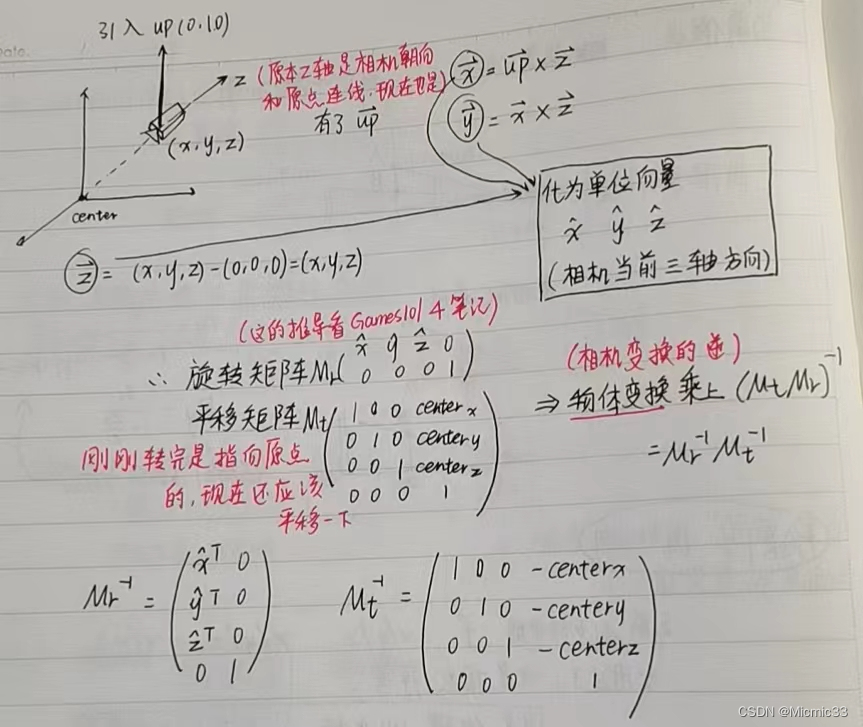 引入 up(0.10)
z (原本Z轴是相机朝向
和原点连线.现在也是)
有了 up
(x,y,z)
center
x = up × z
y = x × z
化为单位向量
x̂ ŷ ẑ
(相机当前三轴方向)
z = (x,y,z)-(0,0,0)=(x,y,z)
(这的推导看Games101 4笔记)
∴ 旋转矩阵Mr( x̂ y ẑ 0
0 0 0 1 )
平移矩阵Mt( 1 0 0 centerx
0 1 0 centery
0 0 1 centerz
0 0 0 1 )
刚刚转完是指向原点
的,现在还应该
平移一下
(相机变换的逆)
⇒ 物体变换乘上 (MtMr)⁻¹
= Mr⁻¹ Mt⁻¹
Mr⁻¹ = ( x̂ᵀ 0
ŷᵀ 0
ẑᵀ 0
0 1 )
Mt⁻¹ = ( 1 0 0 -centerx
0 1 0 -centery
0 0 1 -centerz
0 0 0 1 )
CSDN @Micmic33